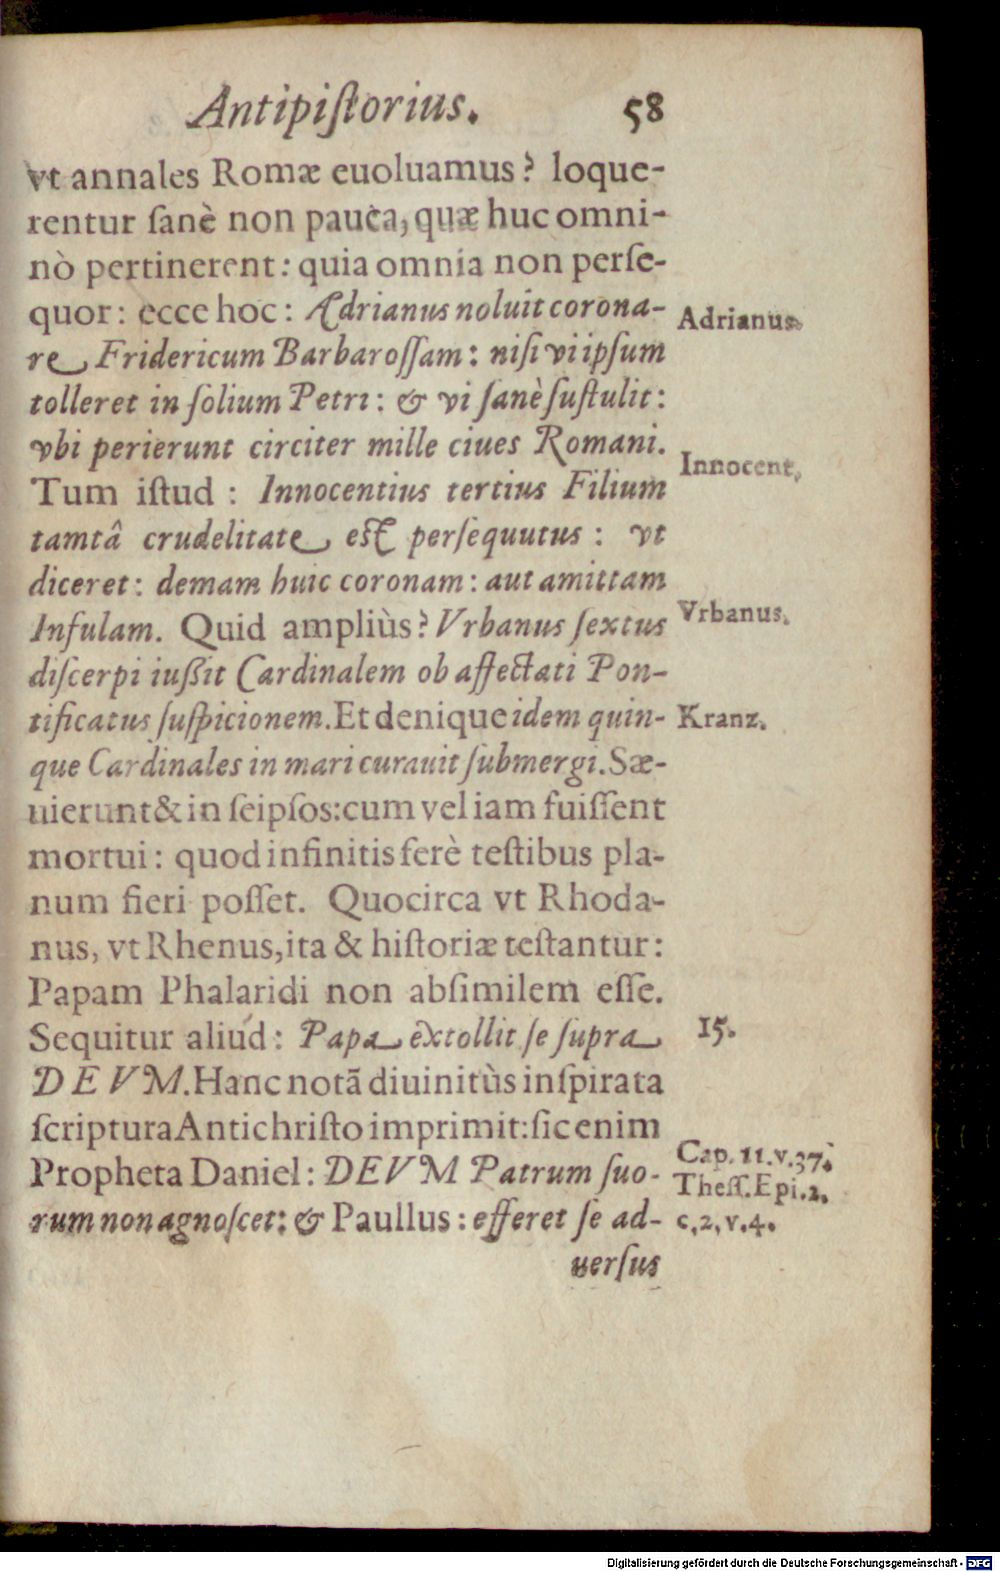 Antipiſtorius. 58
vt annales Romæ euoluamus? loque-
rentur ſanè non pauca, quæ huc omni-
nò pertinerent: quia omnia non perſe-
quor: ecce hoc: Adrianus noluit corona-
Adrianus.
re Fridericum Barbaroſſam: niſi vi ipſum
tolleret in ſolium Petri: & vi ſanè ſuſtulit:
vbi perierunt circiter mille ciues Romani.
Innocent.
Tum iſtud: Innocentius tertius Filium
tamtâ crudelitate eſt perſequutus: vt
diceret: demam huic coronam: aut amittam
Infulam. Quid ampliùs? Vrbanus ſextus
Vrbanus.
diſcerpi iuſsit Cardinalem ob affectati Pon-
tificatus ſuſpicionem. Et denique idem quin-
Kranz.
que Cardinales in mari curauit ſubmergi. Sæ-
uierunt & in ſeipſos: cum vel iam fuiſſent
mortui: quod infinitis ferè teſtibus pla-
num fieri poſſet. Quocirca vt Rhoda-
nus, vt Rhenus, ita & hiſtoriæ teſtantur:
Papam Phalaridi non abſimilem eſſe.
Sequitur aliud: Papa extollit ſe ſupra
15.
DEVM. Hanc notã diuinitùs inſpirata
ſcriptura Antichriſto imprimit: ſic enim
Propheta Daniel: DEVM Patrum ſuo-
Cap. 11. v. 37.
Theſſ. Epi. 2.
rum non agnoſcet: & Paullus: efferet ſe ad-
c. 2, v. 4.
uerſus
Digitalisierung gefördert durch die Deutsche Forschungsgemeinschaft - DFG